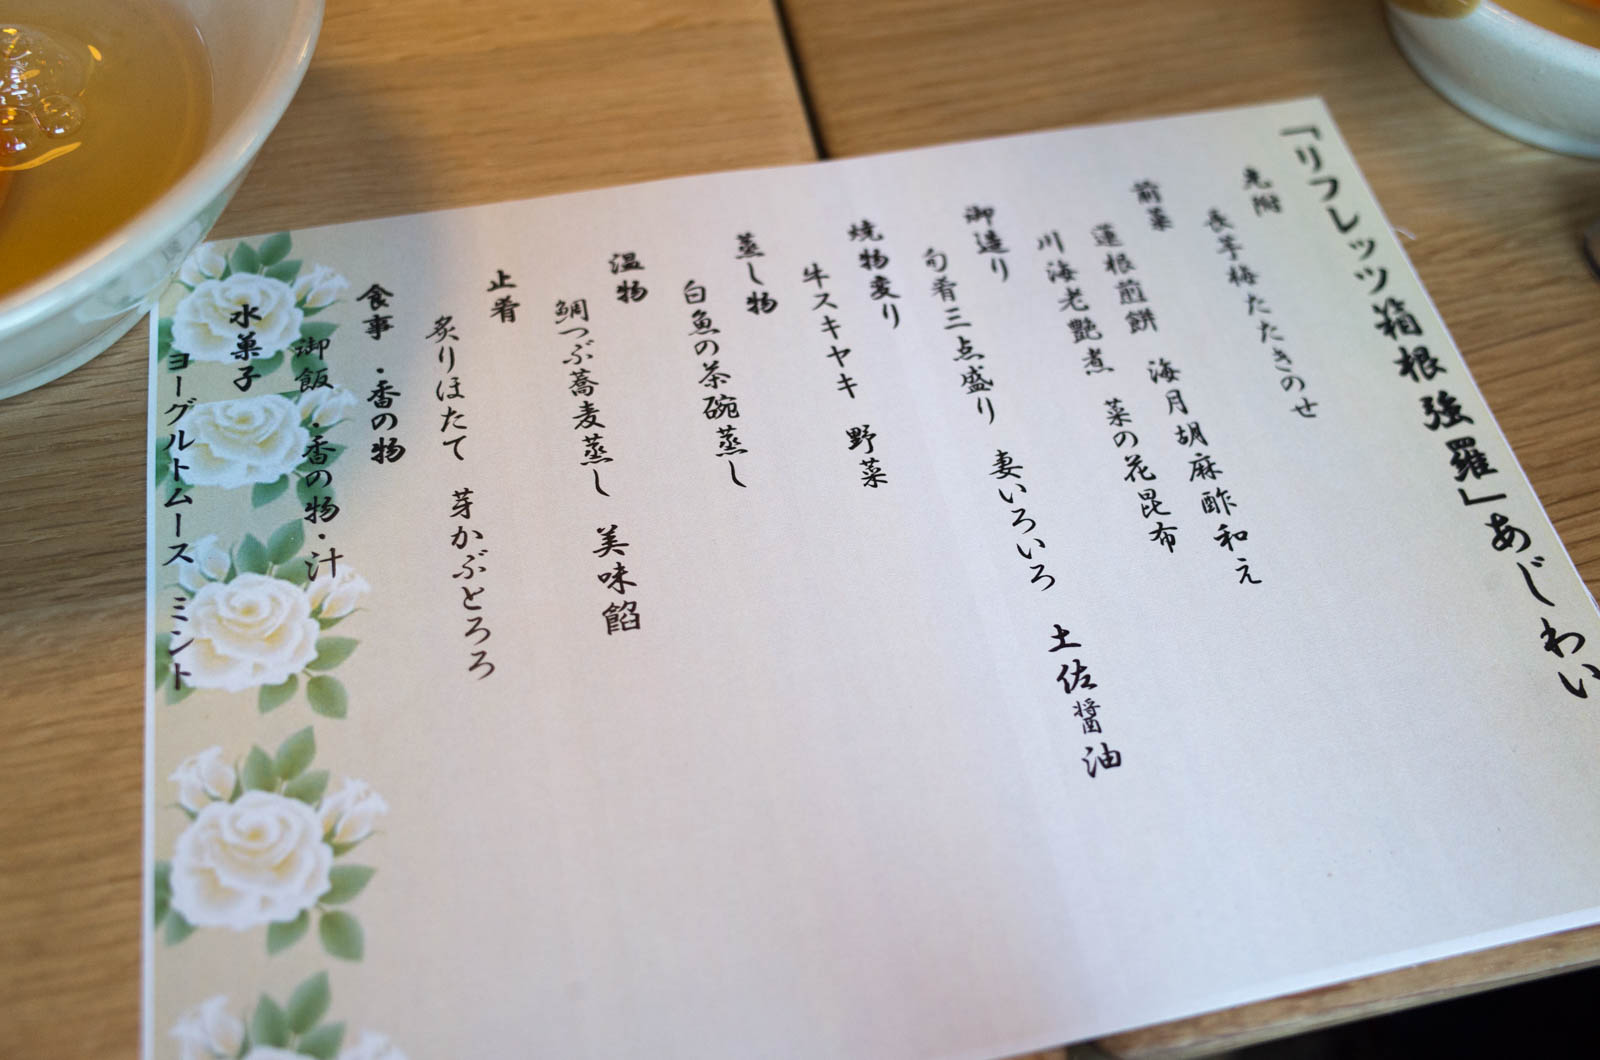 「リフレッツ箱根強羅」あじわい
先附
長芋梅たたきのせ
前菜
蓮根煎餅　海月胡麻酢和え
川海老艶煮　菜の花昆布
御造り
旬肴三点盛り　妻いろいろ　土佐醤油
焼物変り
牛スキヤキ　野菜
蒸し物
白魚の茶碗蒸し
温物
鯛つぶ蕎麦蒸し　美味餡
止肴
炙りほたて　芽かぶとろろ
食事・香の物
御飯・香の物・汁
水菓子
ヨーグルトムース　ミント